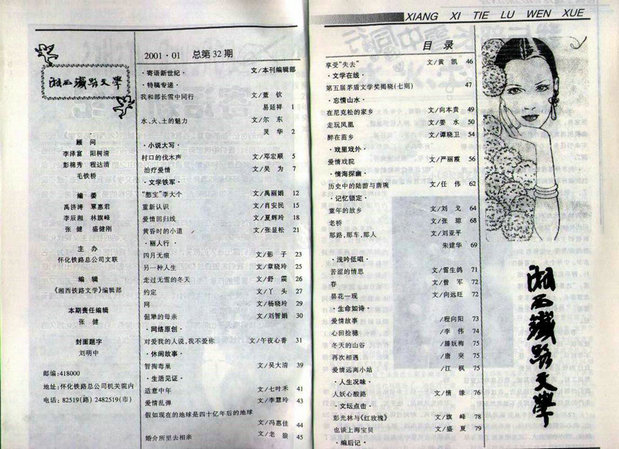 湘西鐵路文學
顾 问
李泽富 阳树清
彭棉秀 程达清
毛铁桥
编 委
禹拼溥 覃惠君
李辰湘 林旗峰
张 健 盛健刚
主 办
怀化铁路总公司文联
编 辑
《湘西铁路文学》编辑部
本期责任编辑
张 健
封面题字
刘明中
邮编:418000
地址:怀化铁路总公司机关院内
电话:82519(路) 2482519(市)
2001·01 总第32期
·寄语新世纪· 文/本刊编辑部
·特稿专递·
我和部长雪中同行 文/董 钦
易延祥 1
水、火、土的魅力 文/尔 东
灵 华 2
·小说大写·
村口的伐木声 文/邓宏顺 5
治疗爱情 文/吴 为 7
·文学铁军·
"憨宝"李大个 文/禹丽娟 12
重新认识 文/肖安民 15
爱情回归线 文/夏辉玲 18
黄昏时的小道 文/张显松 21
·丽人行·
四月无痕 文/影 子 23
另一种人生 文/章晓玲 25
走过无雪的冬天 文/舒 霖 26
约定 文/丫 头 27
网 文/杨晓玲 29
倔犟的母亲 文/刘智娟 30
·网络原创·
对爱我的人说,我不爱你 文/午夜心香 31
·休闲故事·
智掏毒巢 文/吴大清 39
·生活见证·
适意中年 文/七叶禾 41
爱情乱弹 文/李慧玲 43
假如现在的地球是四十亿年后的地球
文/冯惠佳 44
婚介所里去相亲 文/老 狼 45
XIANG XI TIE LU WEN XUE
目 录
享受"失去" 文/黄 凯 46
·文学在线·
第五届茅盾文学奖揭晓(七则) 47
·忘情山水·
在尼克松的家乡 文/向本贵 49
走玩凤凰 文/姜 水 50
醉在苗乡 文/谭晓卫 54
·戏里戏外·
爱情戏院 文/严丽霞 56
·情海探幽·
历史中的陆游与唐琬 文/任 伟 62
·记忆锁定·
童年的故乡 文/刘 戈 64
老桥 文/张 琼 68
那路,那车,那人 文/刘亚平
朱建华 69
·浅吟低唱·
苦涩的情思 文/雷生鸽 71
春 文/曾 军 72
昙花一现 文/向远旺 72
·生命如诗·
爱情故事 文/程向阳 73
心田拾穗 文/李 伟 74
冬天的山谷 文/滕妩梅 75
再次相遇 文/唐 奕 75
爱情远离小站 文/江 枫 75
·人生况味·
人妖心酸路 文/情 缘 76
·文坛点击·
彭光林与《红玫瑰》 文/旗 峰 78
也谈上海宝贝 文/盛 夏 79
·编后记·
湘西鐵路文學